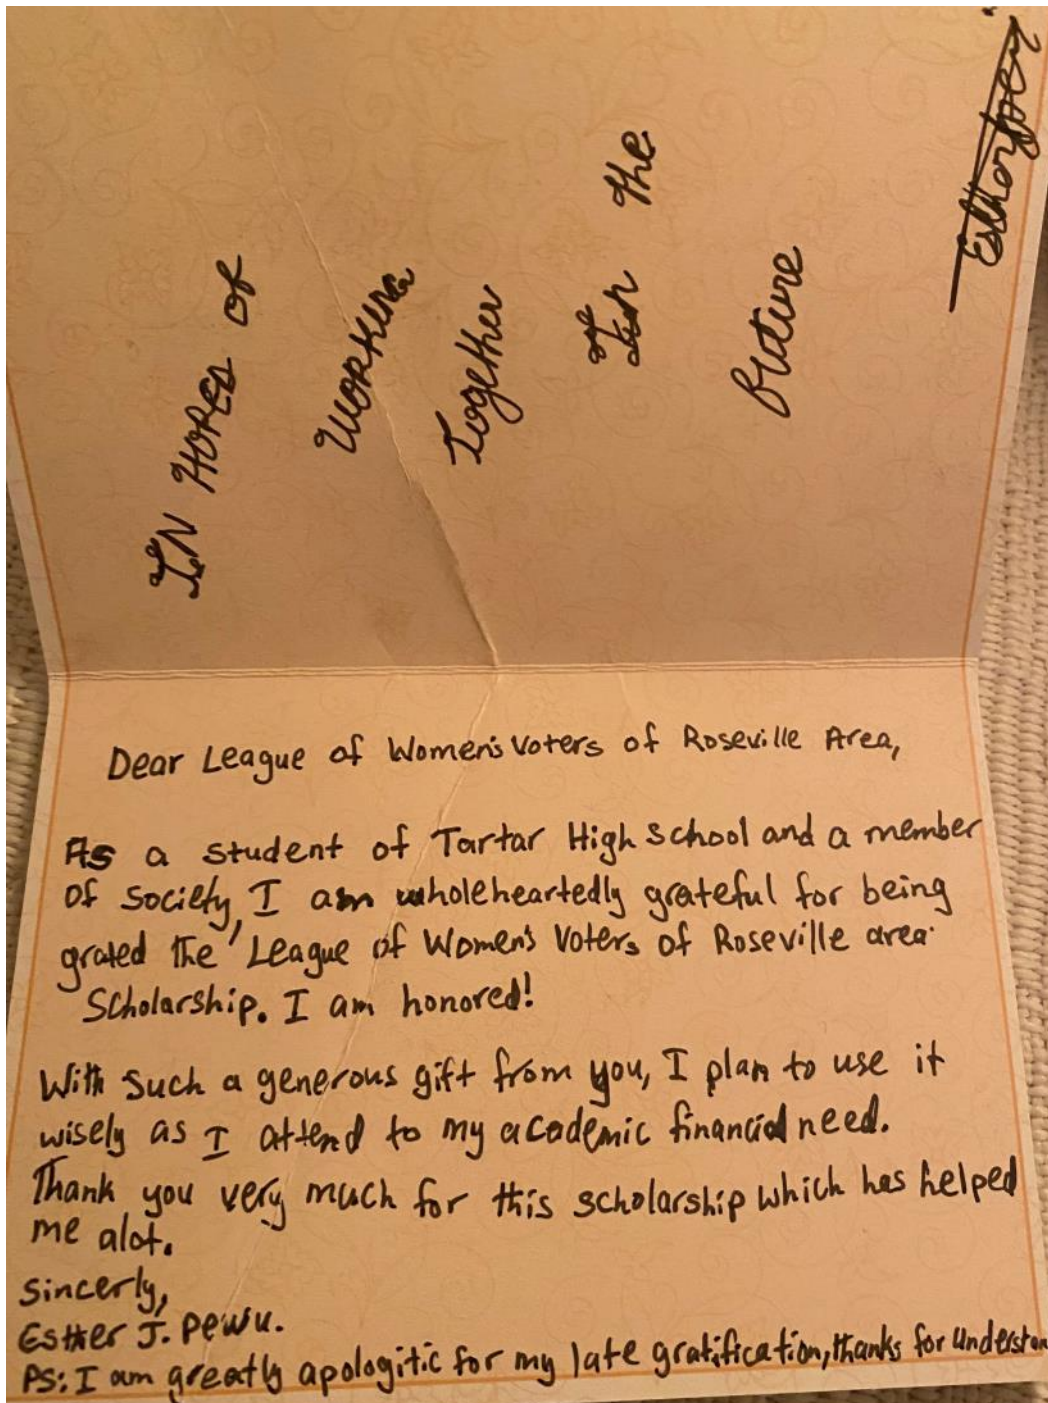 IN HOPES of
Working
Together
For the
Future
Dear League of Women's Voters of Roseville Area,
As a student of Tartar High School and a member
of society, I am wholeheartedly grateful for being
grated the League of Women's Voters of Roseville area
Scholarship. I am honored!
With such a generous gift from you, I plan to use it
wisely as I attend to my academic financial need.
Thank you very much for this scholarship which has helped
me alot.
Sincerly,
Esther J. Pewu.
PS: I am greatly apologitic for my late gratification, thanks for Understan